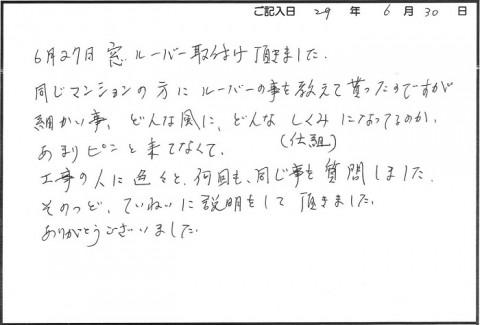 ご記入日 29 年 6 月 30 日
6月27日 窓 ルーバー取付け頂きました.
同じマンションの方に ルーバーの事を教えて貰ったのですが
細かい事、どんな風に、どんな しくみになってるのか、
(仕組)
あまりピンと来てなくて.
工事の人に色々と、何回も、同じ事を質問しました.
そのつど、ていねいに説明をして頂きました.
ありがとうございました.